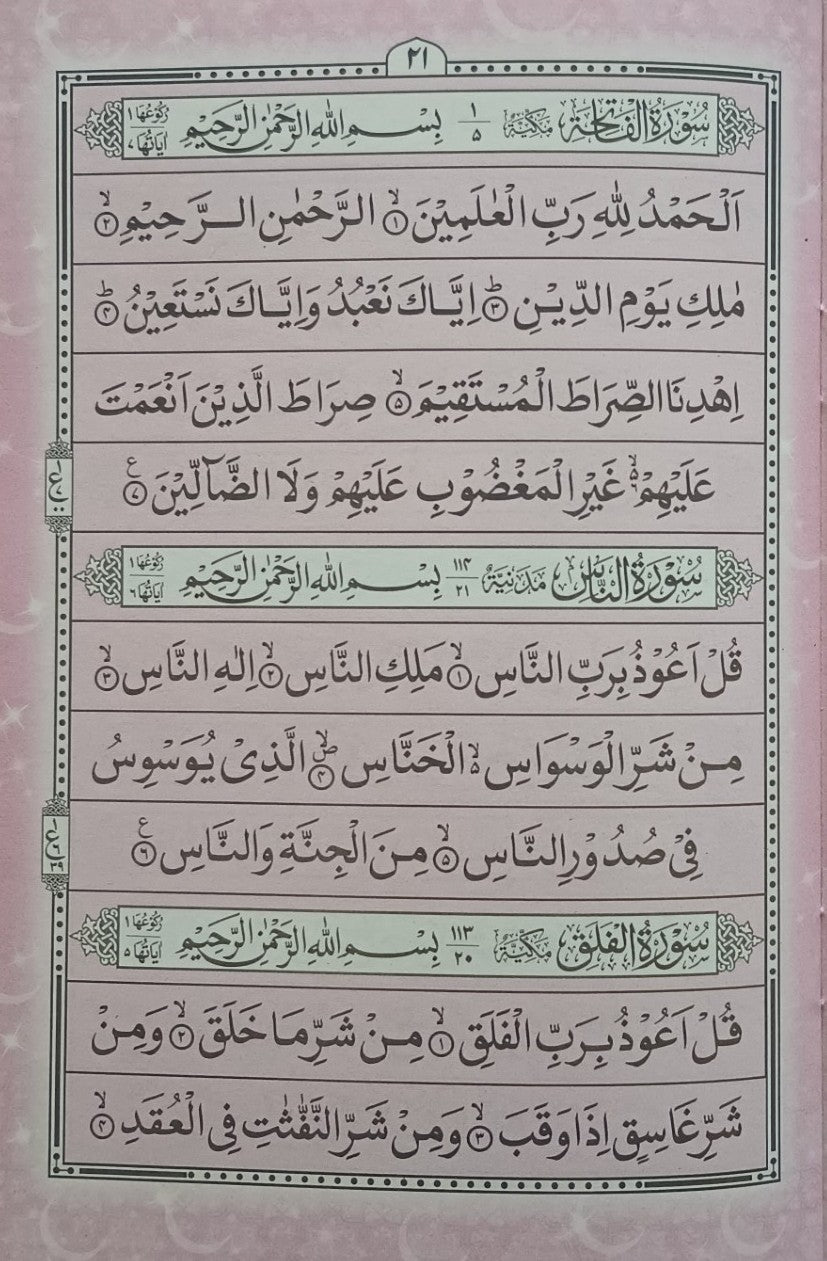 ٢١
سُوْرَةُ الْفَاتِحَةِ مَكِّيَّةٌ ١ ٥ بِسْمِ اللهِ الرَّحْمٰنِ الرَّحِيْمِ رُكُوْعُهَا ١ اٰيَاتُهَا ٧
اَلْحَمْدُ لِلّٰهِ رَبِّ الْعٰلَمِيْنَ ۙ﴿١﴾ الرَّحْمٰنِ الرَّحِيْمِ ۙ﴿٢﴾
مٰلِكِ يَوْمِ الدِّيْنِ ؕ﴿٣﴾ اِيَّاكَ نَعْبُدُ وَاِيَّاكَ نَسْتَعِيْنُ ؕ﴿٤﴾
اِهْدِنَا الصِّرَاطَ الْمُسْتَقِيْمَ ۙ﴿٥﴾ صِرَاطَ الَّذِيْنَ اَنْعَمْتَ
عَلَيْهِمْ ۙ۬ غَيْرِ الْمَغْضُوْبِ عَلَيْهِمْ وَلَا الضَّآلِّيْنَ ﴿٧﴾ع
سُوْرَةُ النَّاسِ مَدَنِيَّةٌ ١١٤ ٢١ بِسْمِ اللهِ الرَّحْمٰنِ الرَّحِيْمِ رُكُوْعُهَا ١ اٰيَاتُهَا ٦
قُلْ اَعُوْذُ بِرَبِّ النَّاسِ ۙ﴿١﴾ مَلِكِ النَّاسِ ۙ﴿٢﴾ اِلٰهِ النَّاسِ ۙ﴿٣﴾
مِنْ شَرِّ الْوَسْوَاسِ ۬ۙ الْخَنَّاسِ ۪ۙ﴿٤﴾ الَّذِىْ يُوَسْوِسُ
فِىْ صُدُوْرِ النَّاسِ ۙ﴿٥﴾ مِنَ الْجِنَّةِ وَالنَّاسِ ﴿٦﴾ع
سُوْرَةُ الْفَلَقِ مَكِّيَّةٌ ١١٣ ٢٠ بِسْمِ اللهِ الرَّحْمٰنِ الرَّحِيْمِ رُكُوْعُهَا ١ اٰيَاتُهَا ٥
قُلْ اَعُوْذُ بِرَبِّ الْفَلَقِ ۙ﴿١﴾ مِنْ شَرِّ مَا خَلَقَ ۙ﴿٢﴾ وَمِنْ
شَرِّ غَاسِقٍ اِذَا وَقَبَ ۙ﴿٣﴾ وَمِنْ شَرِّ النَّفّٰثٰتِ فِى الْعُقَدِ ۙ﴿٤﴾